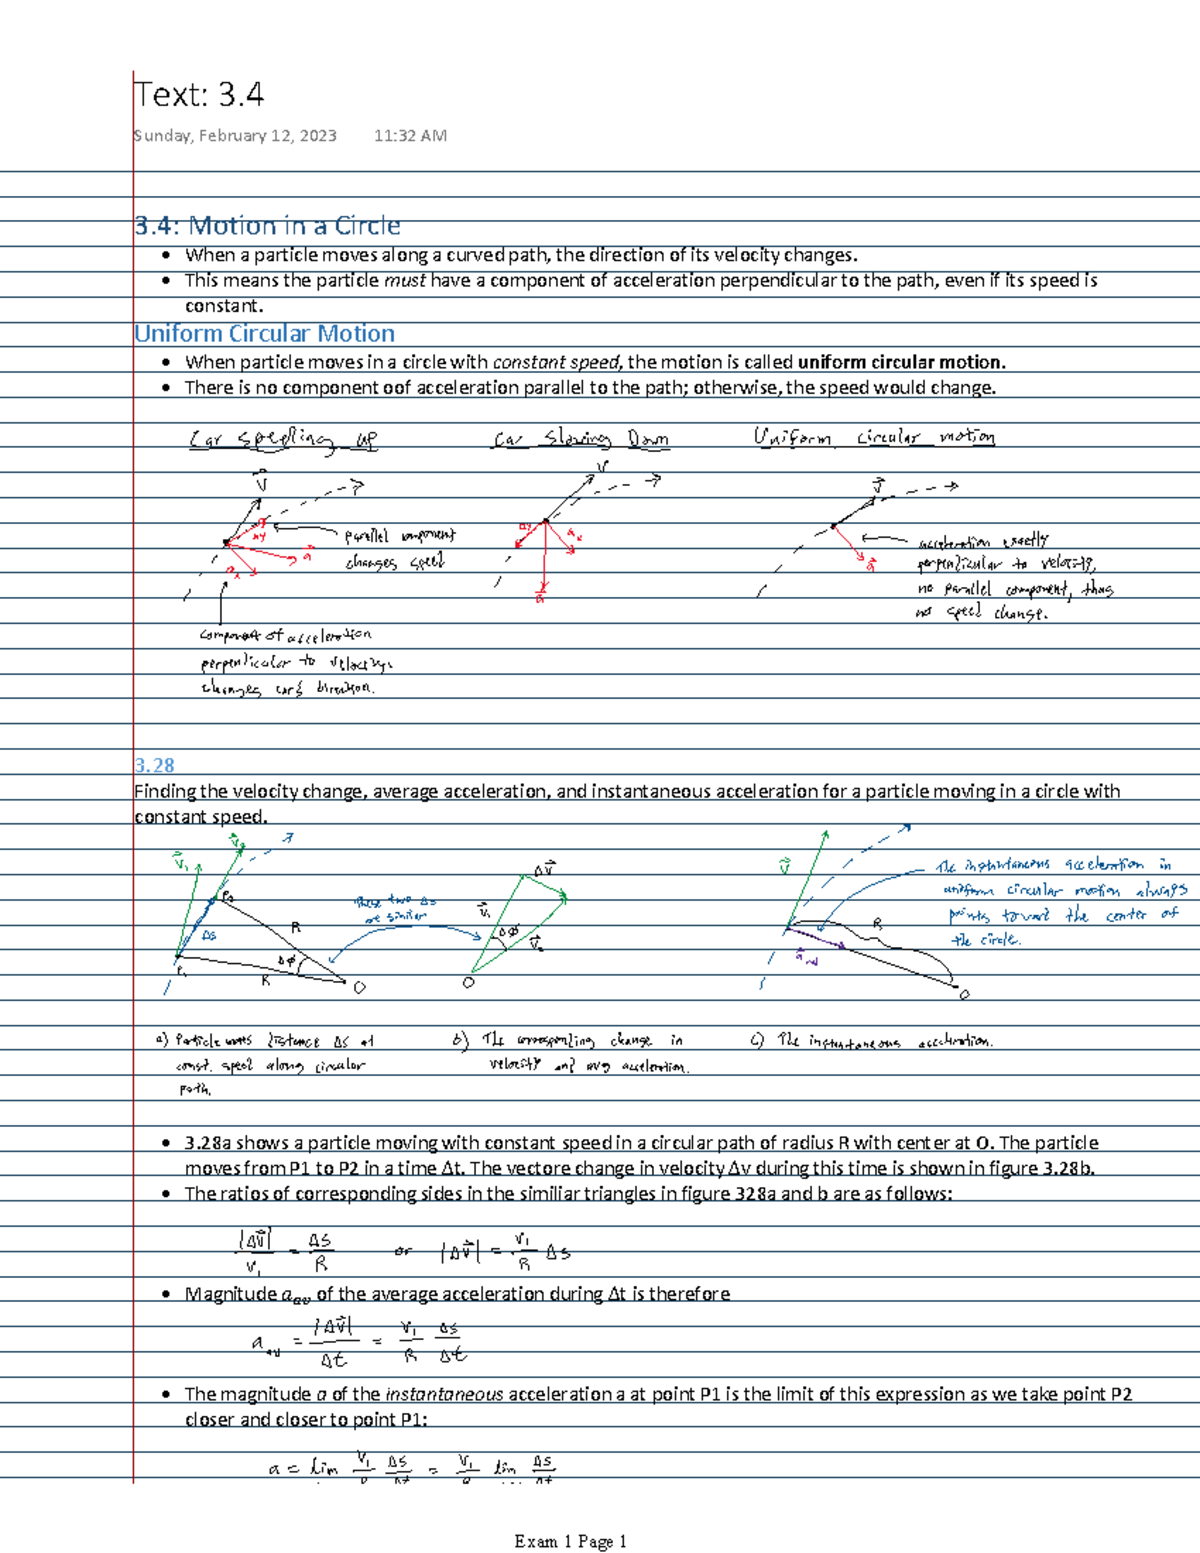 Text: 3.4
Sunday, February 12, 2023 11:32 AM
3.4: Motion in a Circle
• When a particle moves along a curved path, the direction of its velocity changes.
• This means the particle must have a component of acceleration perpendicular to the path, even if its speed is
constant.
Uniform Circular Motion
• When particle moves in a circle with constant speed, the motion is called uniform circular motion.
• There is no component oof acceleration parallel to the path; otherwise, the speed would change.
Car speeding up
Car Slowing Down
Uniform circular motion
parallel component
changes speed
component of acceleration
perpendicular to velocity
changes car's direction.
acceleration exactly
perpendicular to velocity,
no parallel component, thus
no speed change.
3.28
Finding the velocity change, average acceleration, and instantaneous acceleration for a particle moving in a circle with
constant speed.
These two Δs
are similar
The instantaneous acceleration in
uniform circular motion always
points toward the center of
the circle.
a) Particle moves distance Δs at
const. speed along circular
path.
b) The corresponding change in
velocity and avg acceleration.
c) The instantaneous acceleration.
• 3.28a shows a particle moving with constant speed in a circular path of radius R with center at O. The particle
moves from P1 to P2 in a time Δt. The vectore change in velocity Δv during this time is shown in figure 3.28b.
• The ratios of corresponding sides in the similiar triangles in figure 328a and b are as follows:
|Δv⃗|/v₁ = Δs/R or |Δv⃗| = v₁/R Δs
• Magnitude aₐᵥ of the average acceleration during Δt is therefore
aₐᵥ = |Δv⃗|/Δt = v₁/R Δs/Δt
• The magnitude a of the instantaneous acceleration a at point P1 is the limit of this expression as we take point P2
closer and closer to point P1:
a = lim v₁/R Δs/Δt = v₁/R lim Δs/Δt
Exam 1 Page 1